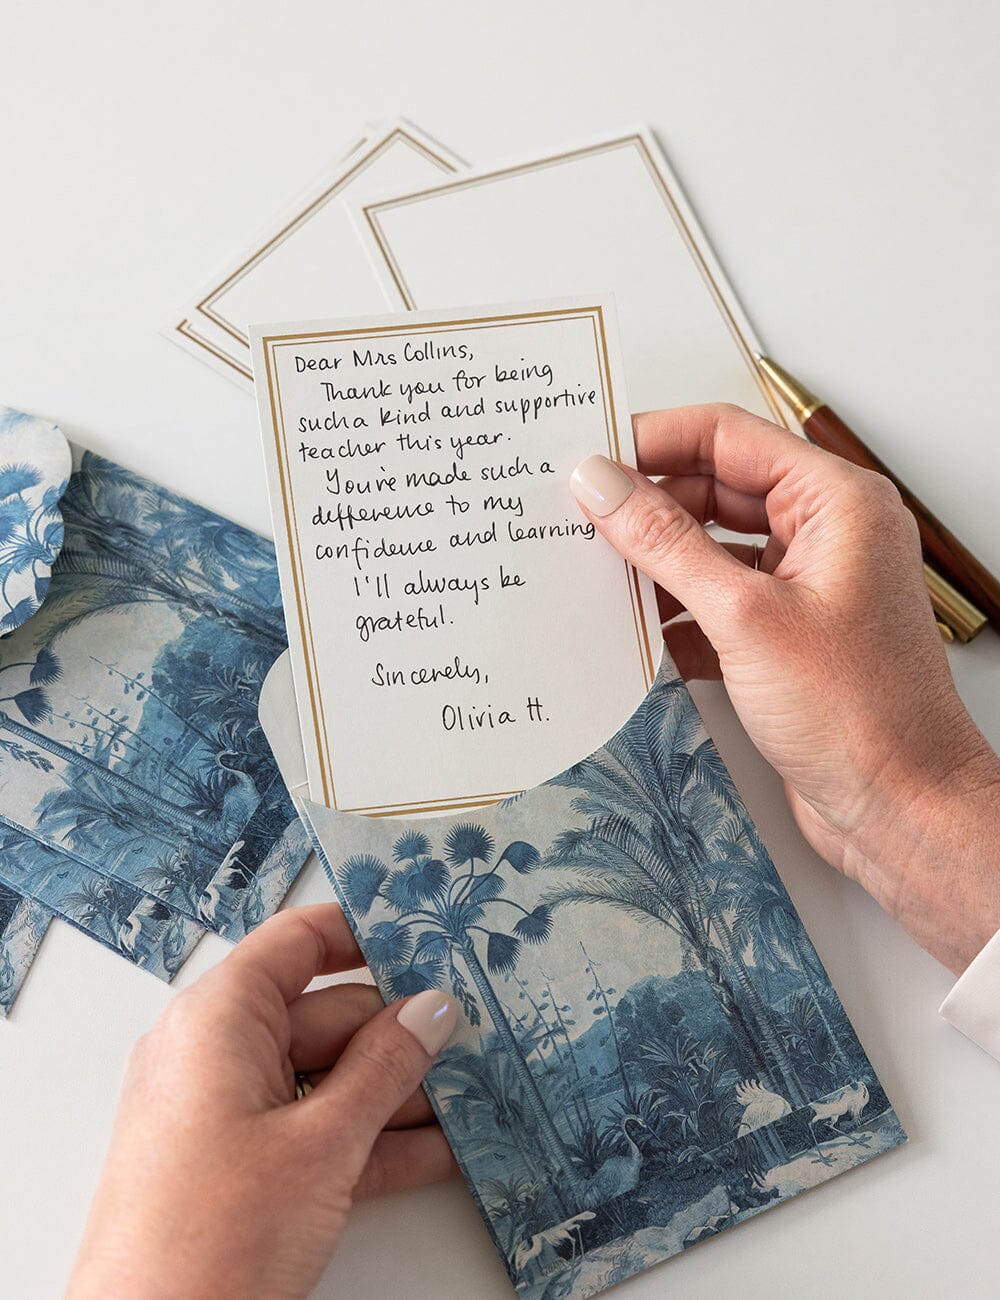 Dear Mrs Collins,
Thank you for being
such a kind and supportive
teacher this year.
You've made such a
difference to my
confidence and learning
I'll always be
grateful.
Sincerely,
Olivia H.